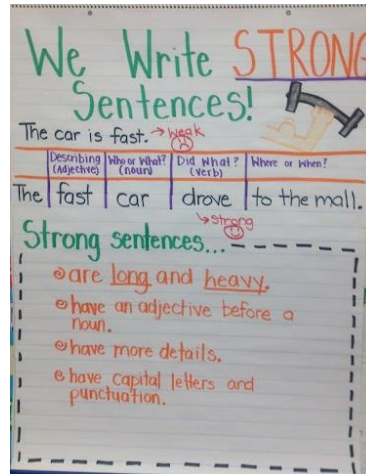 We Write STRONG
Sentences!
The car is fast. → Weak
Describing (Adjective) Who or What? (noun) Did What? (verb) Where or When?
The fast car drove to the mall.
Strong
Strong sentences...
are long and heavy.
have an adjective before a
noun.
have more details.
have capital letters and
punctuation.